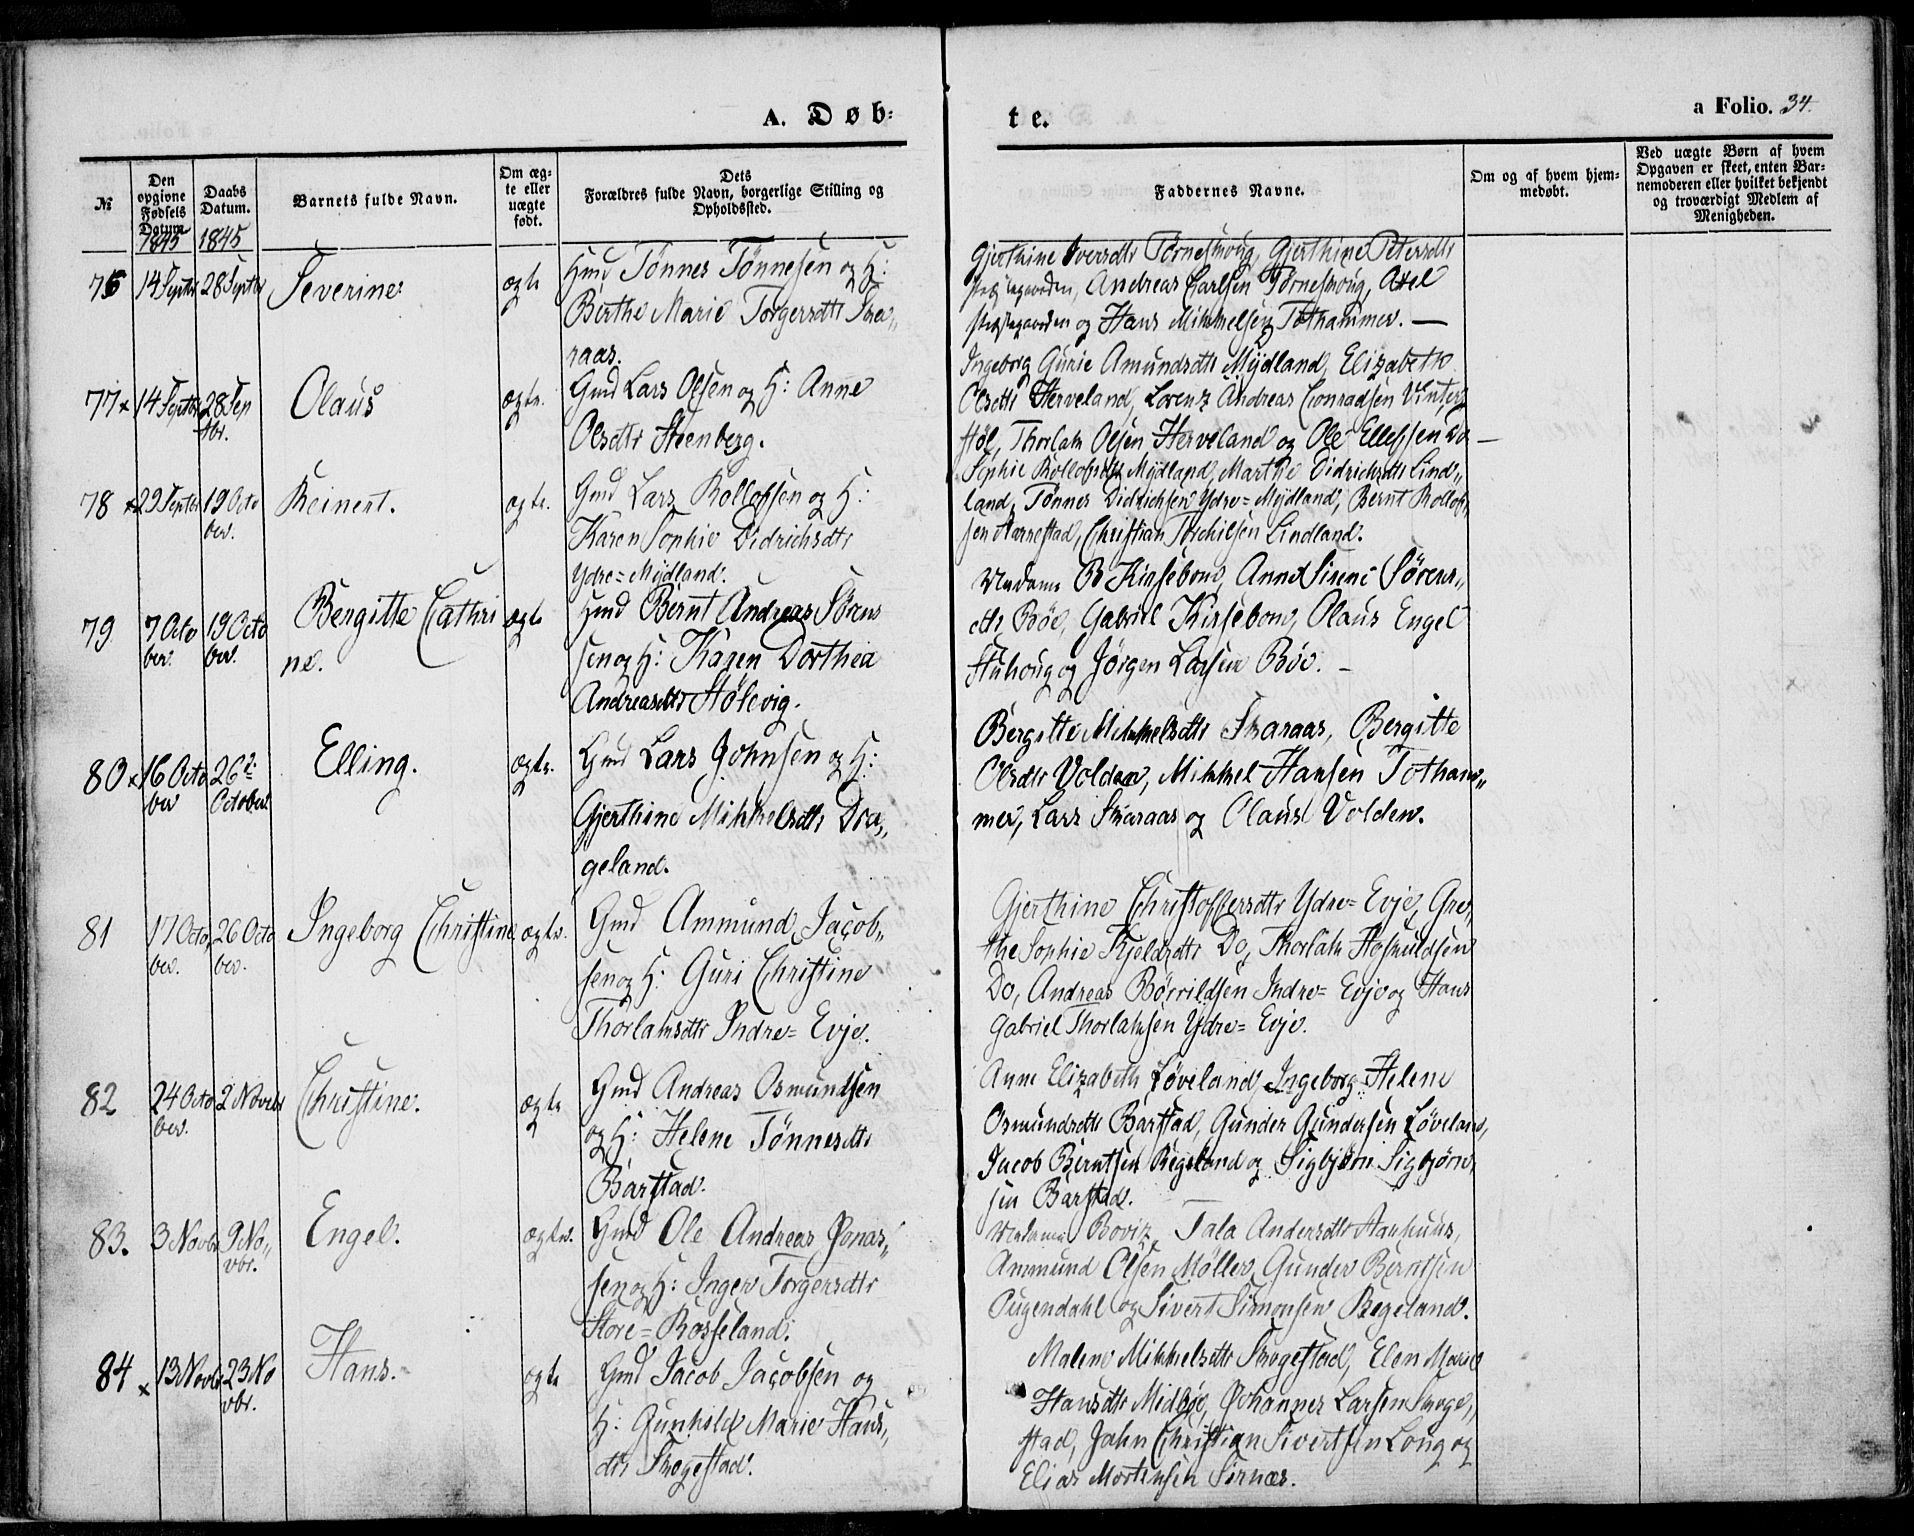 A. Døb-
te.
a Folio. 34.
№
Den opgivne Fødsels Datum
1845
Daabs Datum.
1845
Barnets fulde Navn.
Om ægte eller uægte født.
Dets
Forældres fulde Navn, borgerlige Stilling og
Opholdssted.
Faddernes Navne.
Om og af hvem hjem-
medøbt.
Ved uægte Børn af hvem
Opgaven er skeet, enten Bar-
nemoderen eller hvilket bekjendt
og troværdigt Medlem af
Menigheden.
76 14 Septbr 28 Septbr Severine. ægte
Hmd Tønnes Tønnesen og H:
Berthe Marie Torgersdtr Ska-
raas.
Gjerthine Iversdtr Tornesmoug, Gjerthine Petersdtr
Præstegaarden, Andreas Carlsen Tornesmoug, Axel
Præstegaarden og Hans Mikkelsen Tothammer. —
77 x 14 Septbr 28 Septbr. Olaus ægte.
Gmd Lars Olsen og H: Anne
Olsdtr Steenberg.
Ingeborg Gurie Amundsdtr Mydland, Elizabeth
Olsdtr Herveland, Lorenz Andreas Conradsen Vinters-
Høl, Thorlak Olsen Herveland og Ole Ellefsen Do —
78 x 29 Septbr 19 October. Reinert. ægte.
Gmd Lars Rollofsen og H:
Karen Sophie Didrichsdtr
Ydre=Mydland.
Sophie Rollofsdtr Mydland, Marthe Didrichsdtr Lind-
land, Tønnes Didrichsen Ydre=Mydland, Bernt Rollof-
sen Harrestad, Christian Torchilsen Lindland.
79 7 October. 19 October. Bergitte Cathrine. ægte
Hmd Bernt Andreas Sørens
sen og H: Karen Dorthea
Andreasdtr Hølevig.
Madame B Kirsebom, Anne Sirene Sørens-
dtr Böe, Gabriel Kirsebom, Olaus Engel
Stuhoug og Jörgen Larsen Böe. —
80 x 16 October 26de October Elling. ægte.
Gmd Lars Johnsen og H:
Gjerthine Mikkelsdtr Dra-
geland.
Bergitte Mikkelsdtr Skaraas, Bergitte
Olsdtr Volden, Mikkel Hansen Totham-
mer, Lars Skaraas og Olaus Volden.
81 17 October. 26 October. Ingeborg Christine ægte.
Gmd Ammund Jacob-
sen og H: Guri Christine
Thorlaksdtr Indre=Evje.
Gjerthine Christoffersdtr Ydre=Evje, Gre-
the Sophie Kjeldsdtr Do, Thorlak Hoskuldsen
Do, Andreas Börrildsen Indre=Evje og Hans
Gabriel Thorlaksen Ydre=Evje.
82 24 October. 2 Novebr Christine. ægte
Gmd Andreas Osmundsen
og H: Helene Tønnesdtr
Barstad.
Anne Elizabeth Løveland, Ingeborg Helene
Osmundsdtr Barstad, Gunder Gundersen Løveland,
Jacob Berntsen Regeland og Sigbjörn Sigbjørn-
sen Barstad.
83. 3 Novbr 9 Novbr. Engel. ægte.
Gmd Ole Andreas Jonas-
sen og H: Inger Torgersdtr
Store=Rosseland.
Madame Boviz, Tala Andersdtr Aarhuus,
Ammund Olsen Møller, Gunder Berntsen
Pugendahl og Sivert Simonsen Regeland.
84 x 13 Novbr 23 Novbr. Hans. ægte
Gmd Jacob Jacobsen og
H: Gunhild Marie Hans-
dtr Skogestad.
Malene Mikkelsdtr Skogestad, Elen Marie
Hansdtr Midböe, Johannes Larsen Skoge-
stad, Jahn Christian Sivertsen Long og
Elias Mortensen Sirnæs.